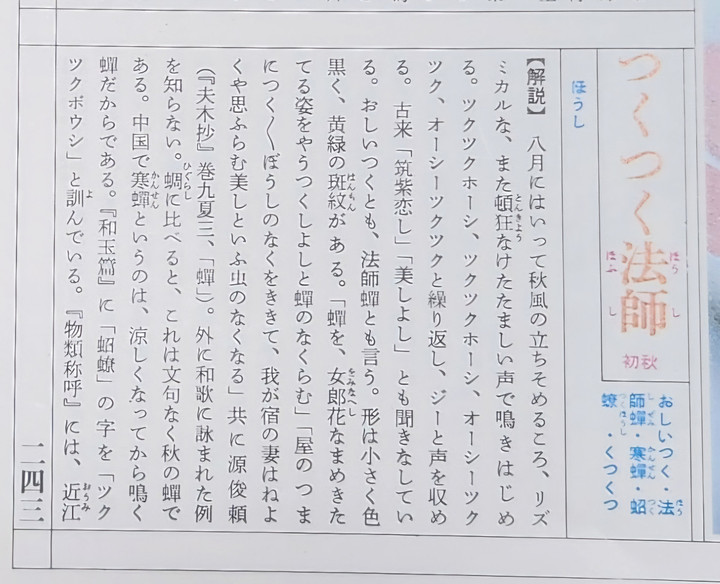 つくつく法師 初秋
ほうし
ほふし
おしいつく・法
師蟬・寒蟬・蛁
蟟・くつくつ
ほうし
【解説】 八月にはいって秋風の立ちそめるころ、リズ
ミカルな、また頓狂なけたたましい声で鳴きはじめ
る。ツクツクホーシ、ツクツクホーシ、オーシーツク
ツク、オーシーツクツクと繰り返し、ジーと声を収め
る。 古来「筑紫恋し」「美しよし」とも聞きなしてい
る。おしいつくとも、法師蟬とも言う。形は小さく色
黒く、黄緑の斑紋がある。「蟬を、女郎花なまめきた
てる姿をやうつくしよしと蟬のなくらむ」「屋のつま
につく〱ぼうしのなくをききて、我が宿の妻はねよ
くや思ふらむ美しといふ虫のなくなる」共に源俊頼
(『夫木抄』巻九夏三、「蟬」)。外に和歌に詠まれた例
を知らない。蜩に比べると、これは文句なく秋の蟬で
ある。中国で寒蟬というのは、涼しくなってから鳴く
蟬だからである。『和玉篇』に「蛁蟟」の字を「ツク
ツクボウシ」と訓んでいる。『物類称呼』には、近江
二四三